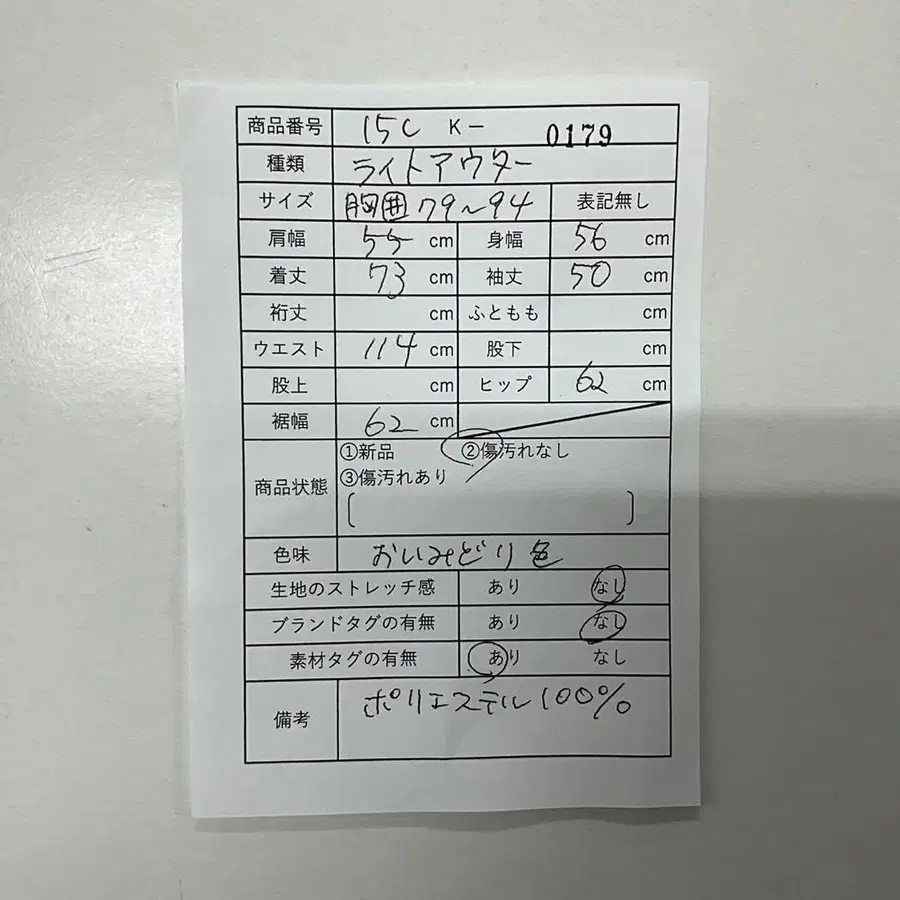 商品番号 15C K- 0179
種類 ライトアウター
サイズ 胸囲 79~94 表記無し
肩幅 55 cm 身幅 56 cm
着丈 73 cm 袖丈 50 cm
裄丈 cm ふともも cm
ウエスト 114 cm 股下 cm
股上 cm ヒップ 62 cm
裾幅 62 cm
①新品 ②傷汚れなし
③傷汚れあり
商品状態
[ ]
色味 おいみどり色
生地のストレッチ感 あり なし
ブランドタグの有無 あり なし
素材タグの有無 あり なし
備考 ポリエステル100%